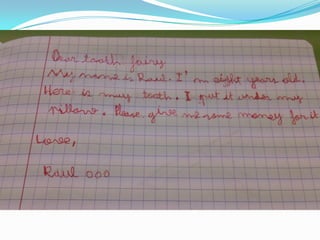 Dear tooth fairy
My name is Raul. I'm eight years old.
Here is my tooth. I put it under my
pillow. Please give me some money for it
Love,
Raul ooo